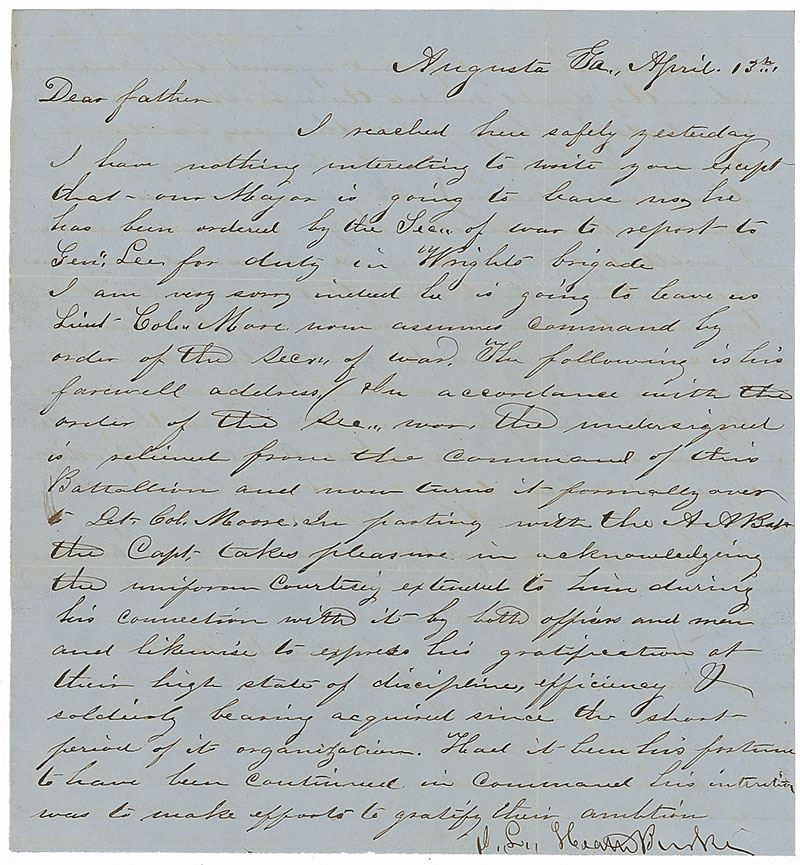 Augusta Ga., April. 13th.
Dear father
I reached here safely yesterday
I have nothing interesting to write you except
that our Major is going to leave us, he
has been ordered by the Sec" of war to report to
Gen". Lee for duty in Wrights brigade
I am very sorry indeed he is going to leave us
Lieut Col" Moore now assumes command by
order of the Secr" of war. The following is his
farewell address, In accordance with the
order of the Sec" war, the undersigned
is relieved from the command of this
Battallion and now turns it formally over
t Lt Col. Moore. In parting with the A. A Bat
the Capt. takes pleasure in acknowledgeing
the uniform courtisiy extended to him during
his connection with it by both officers and men
and likewise to express his gratification at
their high state of discipline, efficiency &
soldierly bearing acquired since the short
period of it organization. Had it been his fortune
to have been continued in command his intention
was to make efforts to gratify their ambtion